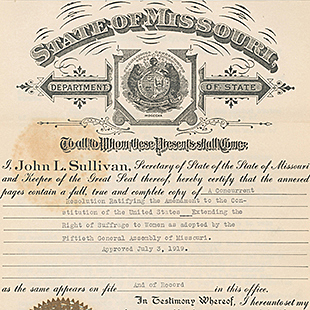 STATE OF MISSOURI,
DEPARTMENT OF STATE
To all to Whom these Presents shall Come:
I, John L. Sullivan, Secretary of State of the State of Missouri
and Keeper of the Great Seal thereof, hereby certify that the annexed
pages contain a full, true and complete copy of A Concurrent
Resolution Ratifying the Amendment to the Con-
stitution of the United States Extending the
Right of Suffrage to Women as adopted by the
Fiftieth General Assembly of Missouri.
Approved July 3, 1919.
as the same appears on file And of Record in this office.
In Testimony Whereof, I hereunto set my